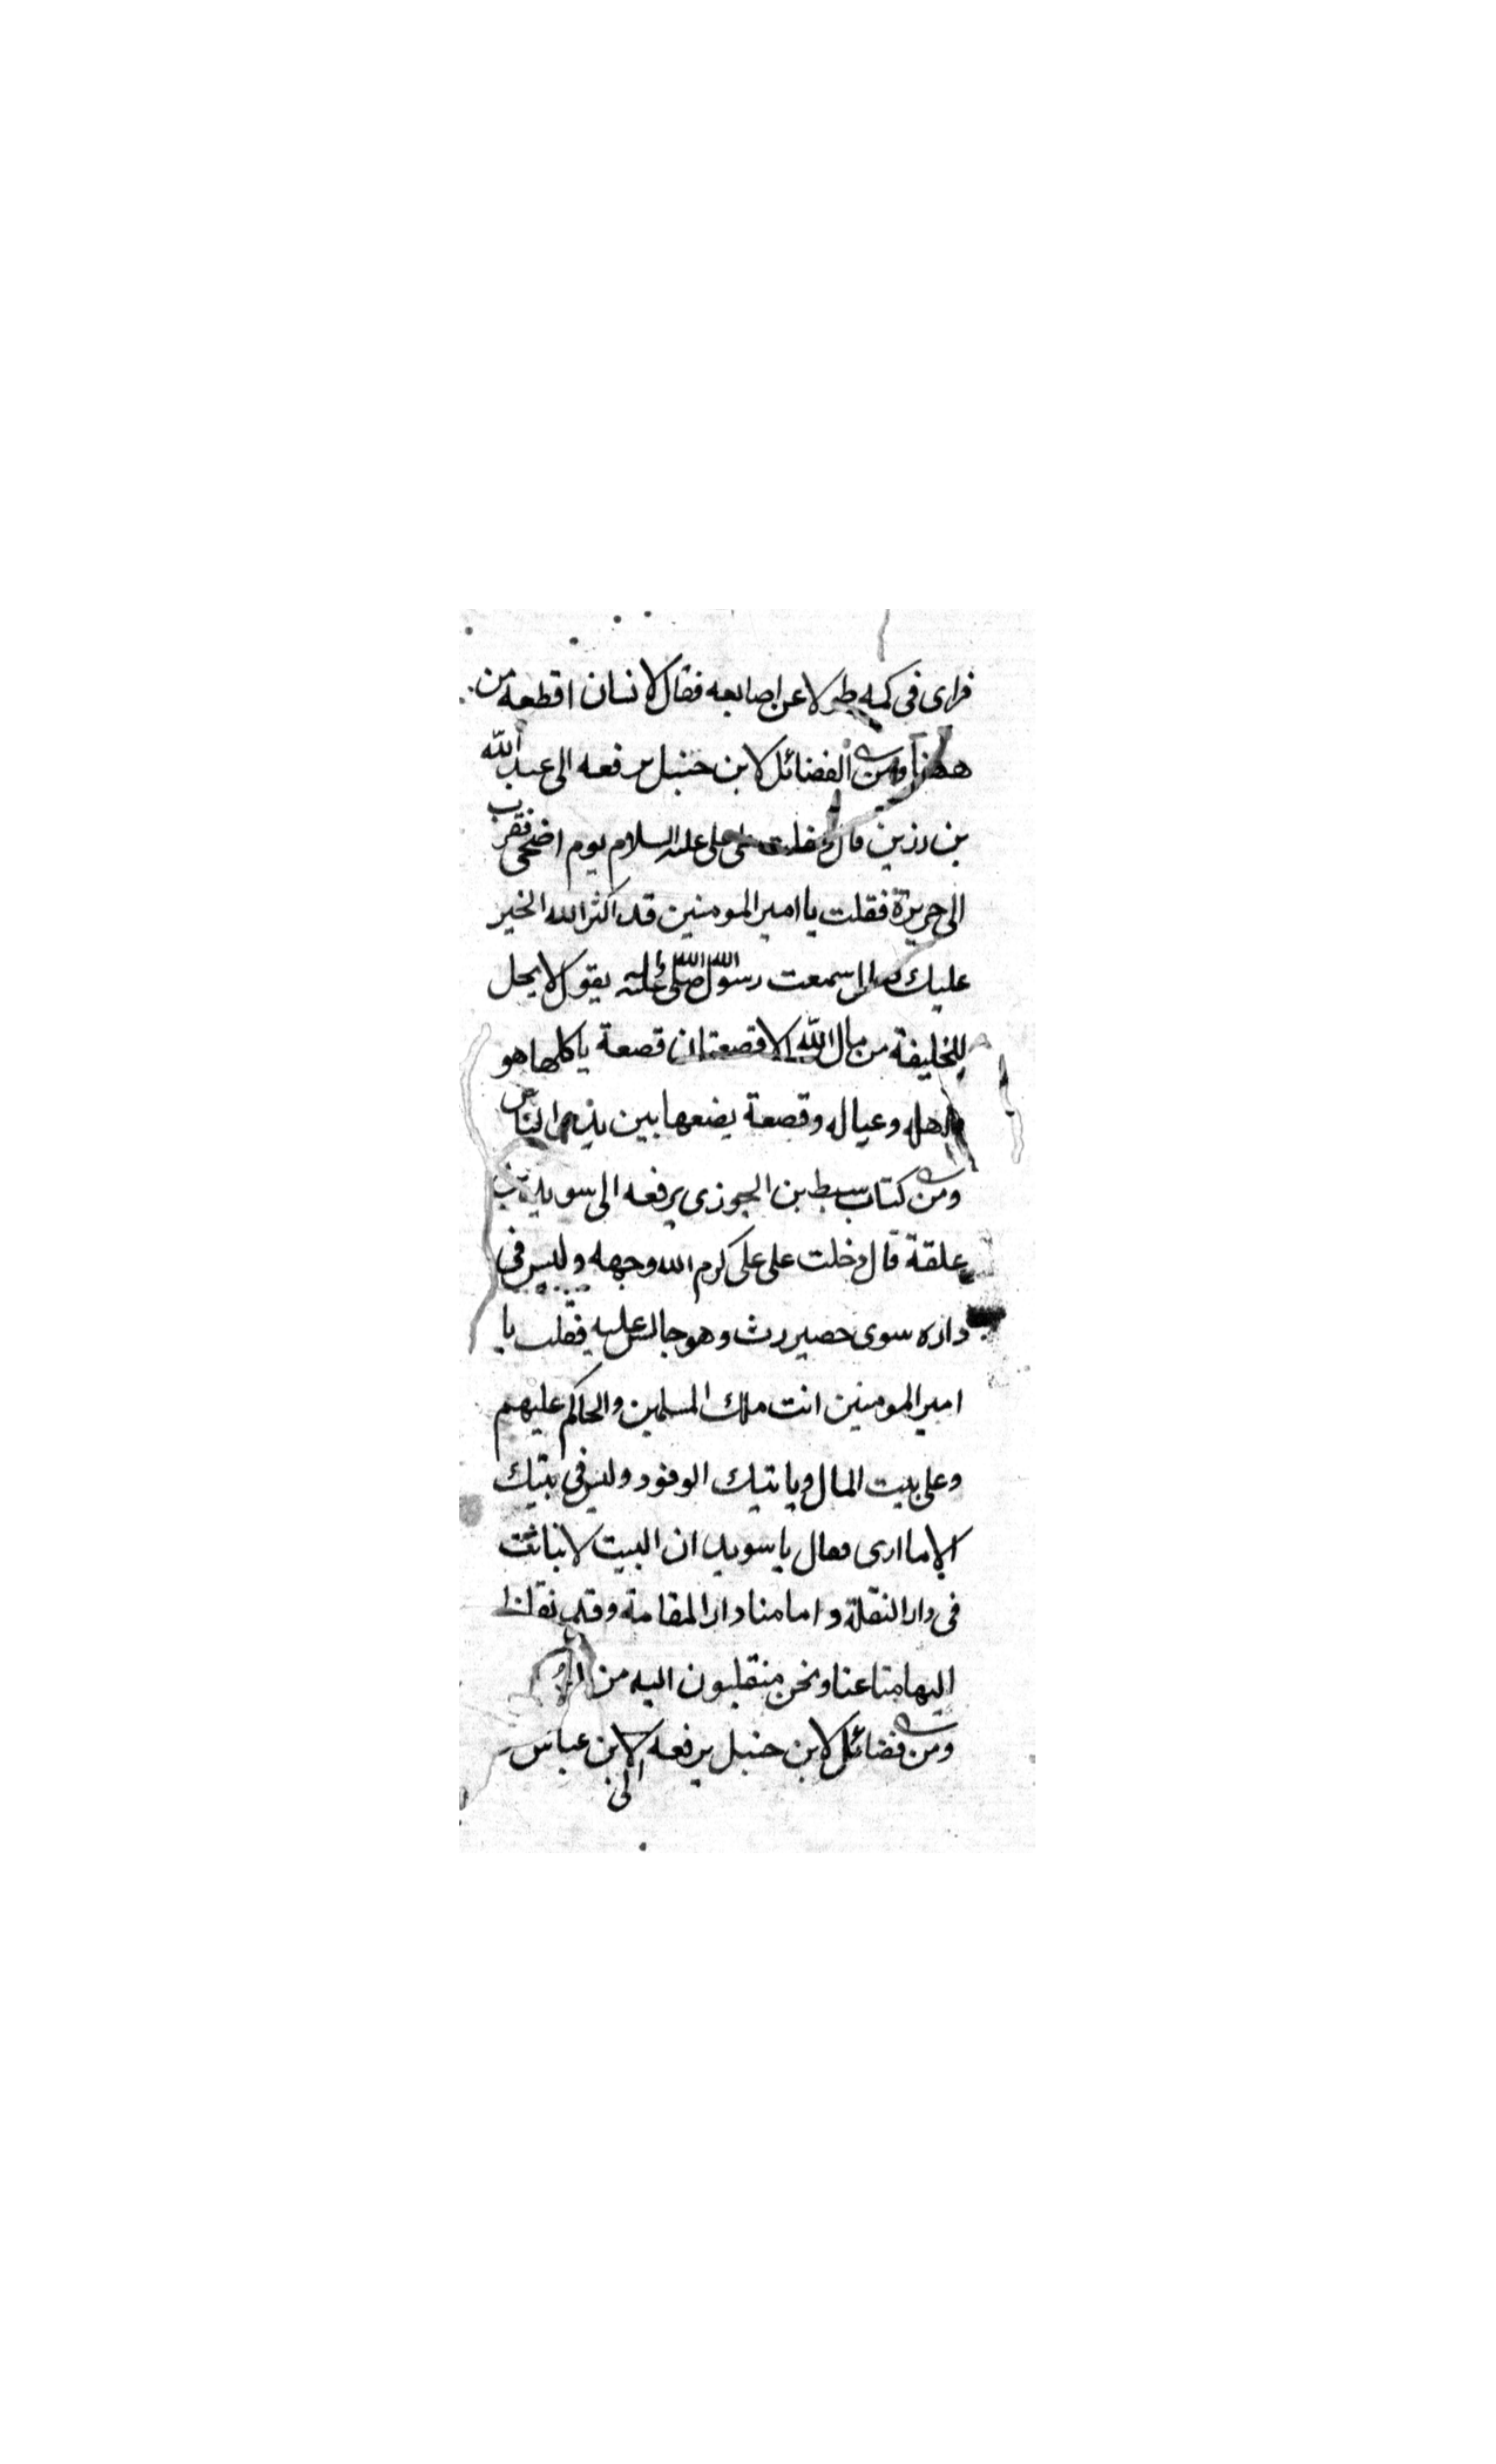 فراى فى كمه طولا عن اصابعه فقال لانسان اقطعه من
ههنا ومن الفضائل لابن حنبل يرفعه الى عبد الله
بن رزين قال دخلت على على عليه السلام يوم اضحى فقرب
الى حريرة فقلت يا امير المومنين قد اكثر الله الخير
عليك سمعت رسول الله صلى الله عليه يقول لا يحل
للخليفة من مال الله الا قصعتان قصعة ياكلها هو
واهله وعياله وقصعة يضعها بين يدى الناس
ومن كتاب سبط بن الجوزى يرفعه الى سويد بن
علقة قال دخلت على على كرم الله وجهه وليس فى
داره سوى حصير رث وهو جالس عليه فقلت يا
امير المومنين انت ملك المسلمين والحاكم عليهم
وعلى بيت المال وياتيك الوفود وليس فى بيتك
الا ما ارى فقال يا سويد ان البيت لا يتاثث
فى دار النقلة وامامنا دار المقامة وقد نقلنا
اليها متاعنا ونحن منقلبون اليه من
ومن فضائل لابن حنبل يرفعه الى ابن عباس